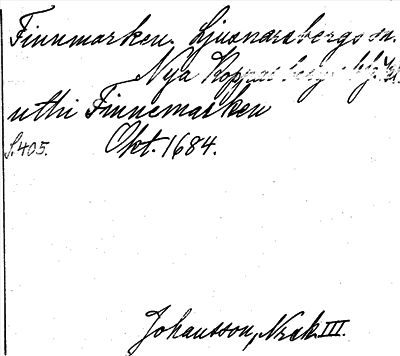 Finnmarken. Ljusnarsbergs sn.
Nya Kopparbergs
uthi Finnemarken
S. 405. Okt. 1684.
Johansson, Norak. III.